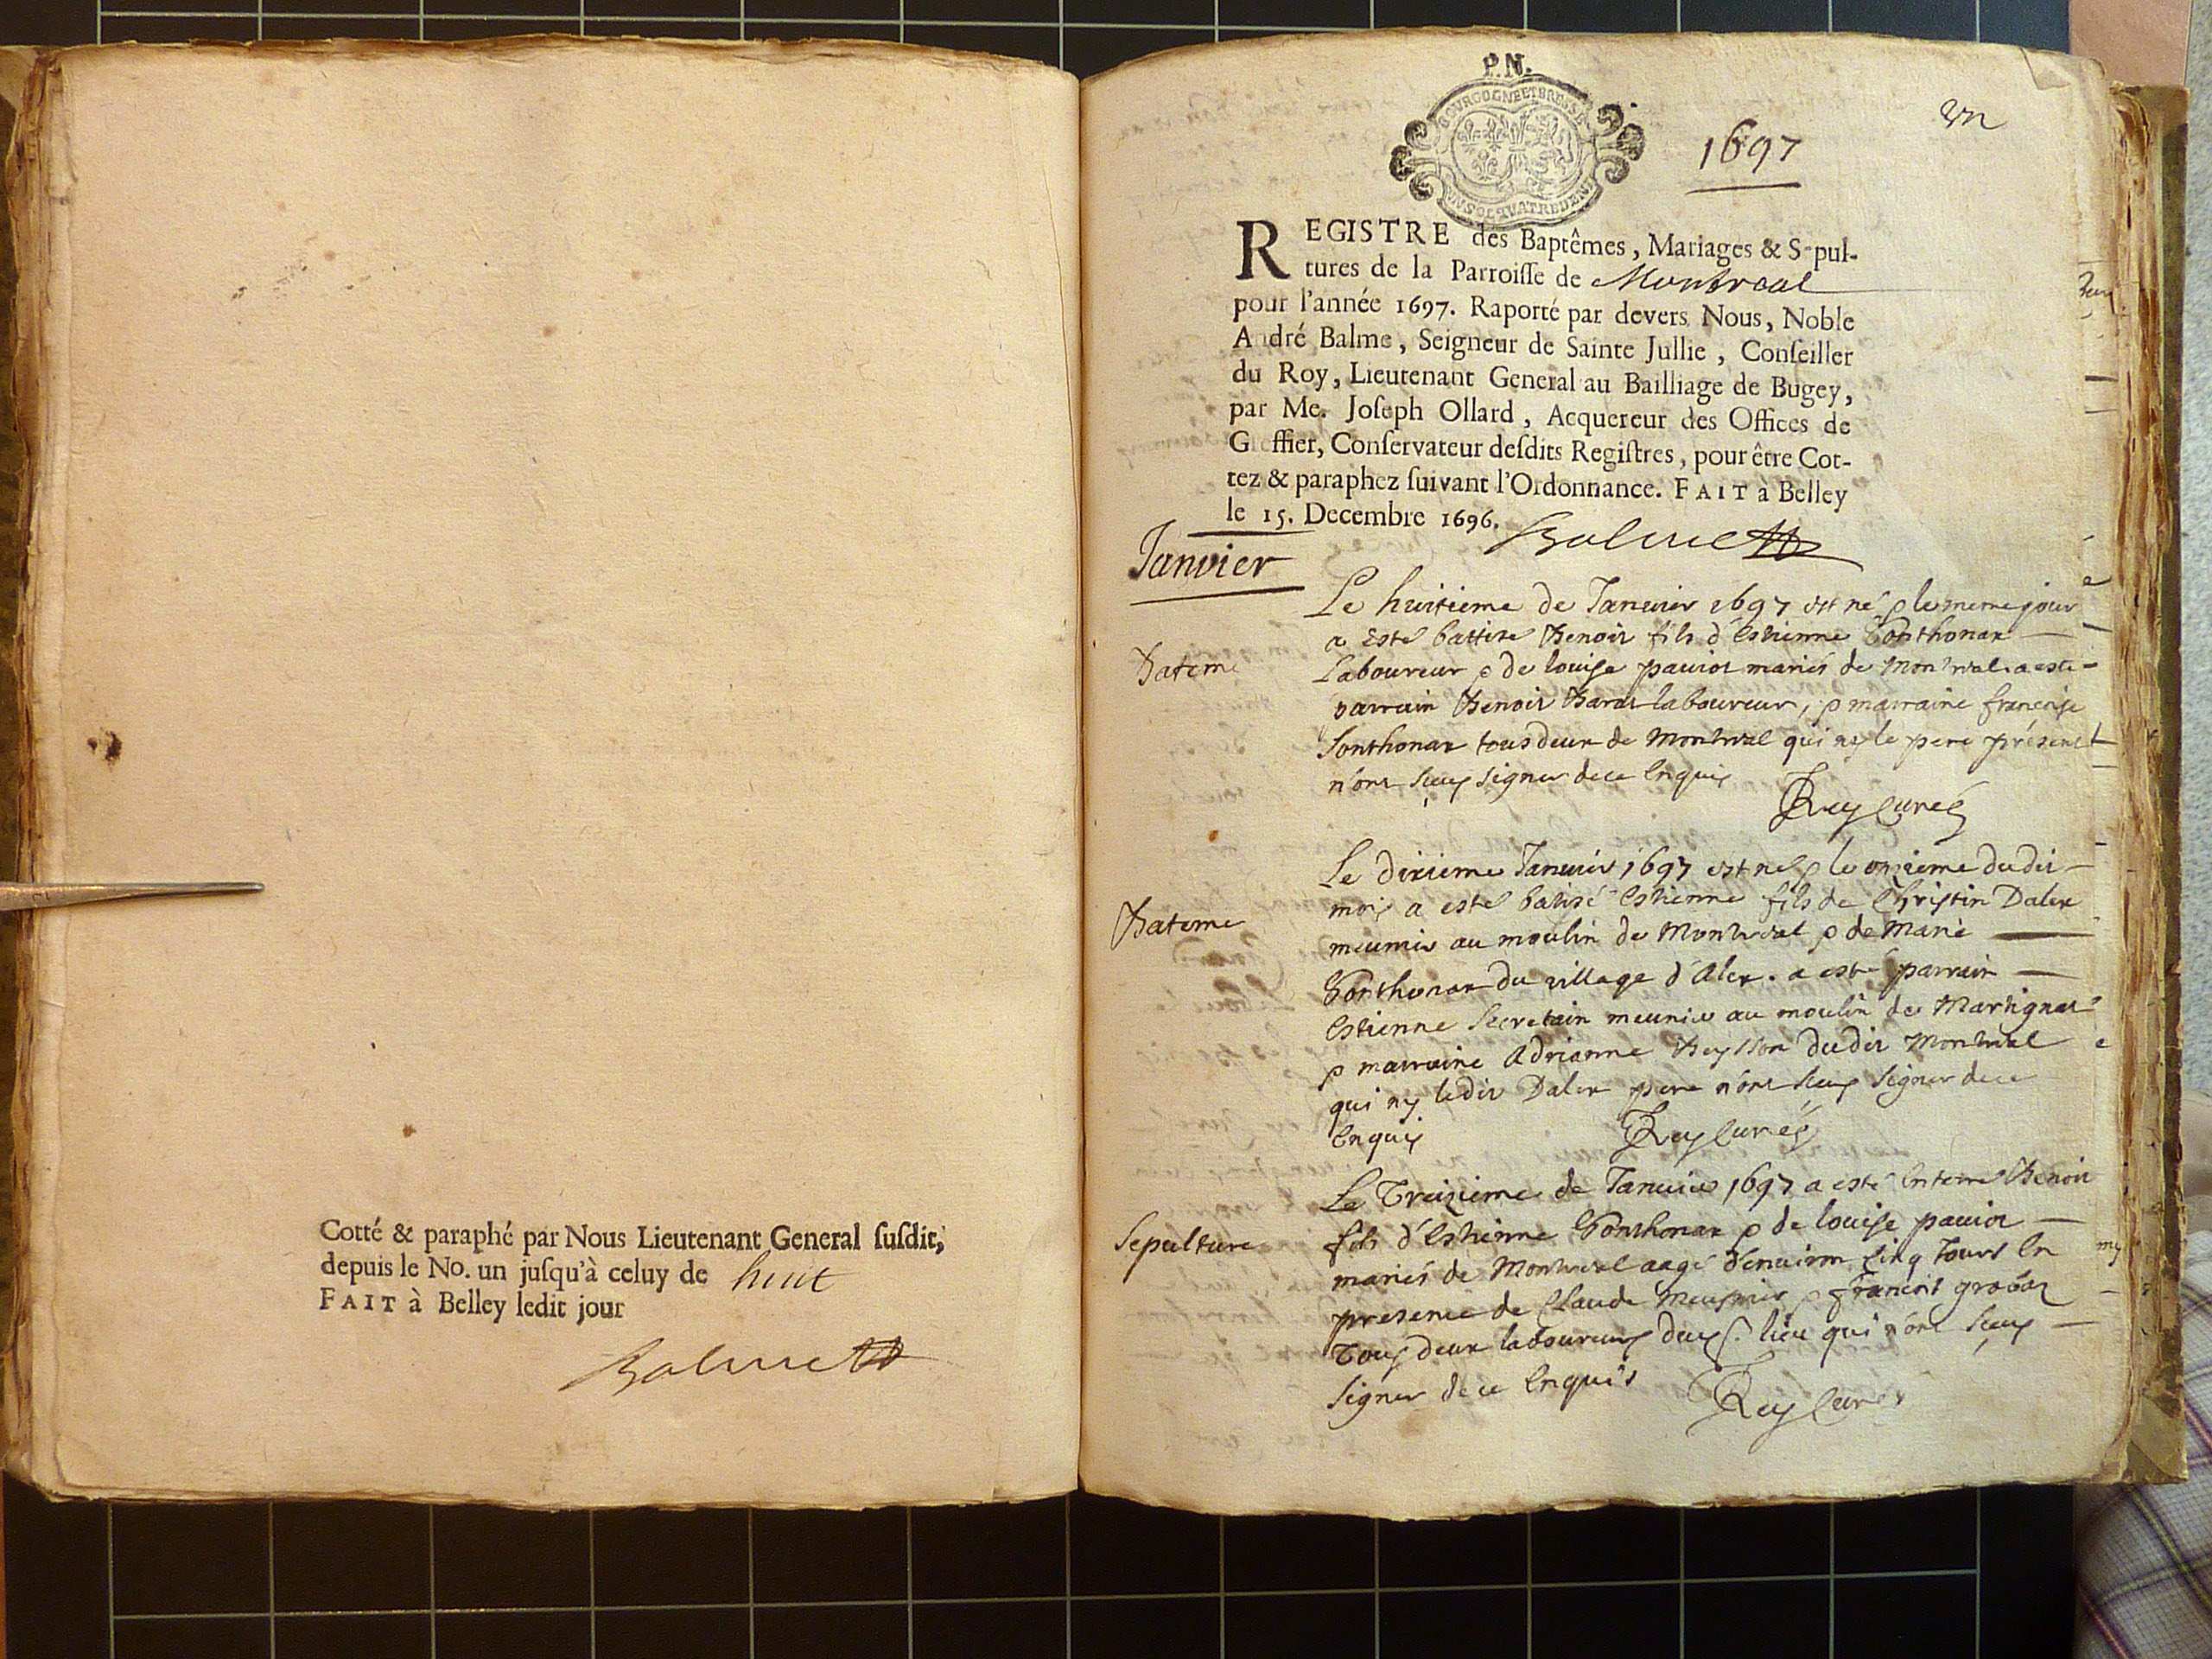 Cotté & paraphé par Nous Lieutenant General ſuſdit,
depuis le No. un juſqu'à celuy de huit
FAIT à Belley ledit jour
Balme
P.N.
BOURGOGNE ET BRESSE
UN SOL QUATRE DEN
1697
un
REGISTRE des Baptêmes, Mariages & Sepul-
tures de la Parroiſſe de Montreal
pour l'année 1697. Raporté par devers Nous, Noble
André Balme, Seigneur de Sainte Jullie, Conſeiller
du Roy, Lieutenant General au Bailliage de Bugey,
par Me. Joſeph Ollard, Acquereur des Offices de
Greffier, Conſervateur deſdits Regiſtres, pour être Cot-
tez & paraphez ſuivant l'Ordonnance. FAIT à Belley
le 15. Decembre 1696.
Balme
Janvier
Bateme
Le huitieme de Januier 1697 est né & le meme jour
a esté battise Benoit fils d'Estienne Sonthonax
Laboureur & de louise pauiot mariés de Montreal. a este
parrain Benoit laboureur, & marraine françoise
Sonthonax tous deux de Montreal qui ny le pere présent
n'ont sceus signer de ce Enquis
Rey Curé
Bateme
Le dixieme Januier 1697 est né & le onzieme dudit
mois a esté batisé Estienne fils de Christin Dalex
meunier au moulin de Montreal & de Marie
Sonthonax du village d'Alex. a esté parrain
Estienne Secretain meunier au moulin de Martignat
& marraine Adrianne dudit Montreal
qui ny ledit Dalex pere n'ont sceus signer de ce
Enquis
Rey Curé
Sepulture
Le Treizieme de Januier 1697 a esté Enterré Benoit
fils d'Estienne Sonthonax & de louise pauiot
mariés de Montreal aagé d'enuiron cinq Jours En
presence de Claude Meusnier & francois grobos
Tous deux laboureurs lieu qui n'ont sceus
signer de ce Enquis
Rey Curé